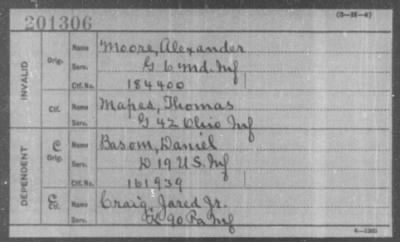 201306 (3-35-4)
INVALID
Orig. Name Moore, Alexander
Serv. G 6 Md. Inf
Ctf. No. 184400
Ctf. Name Mapes, Thomas
Serv. G 42 Ohio Inf
DEPENDENT
C Orig. Name Basom, Daniel
Serv. D 19 U.S. Inf
Ctf. No. 161939
C Ctf. Name Craig, Jared Jr.
Serv. 90 Pa Inf